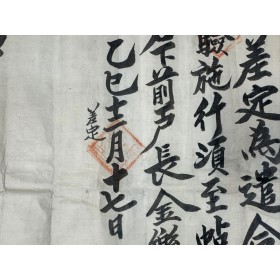 差定爲遣合
驗施行須至帖
下前戸長金
乙巳十二月十七日
差定